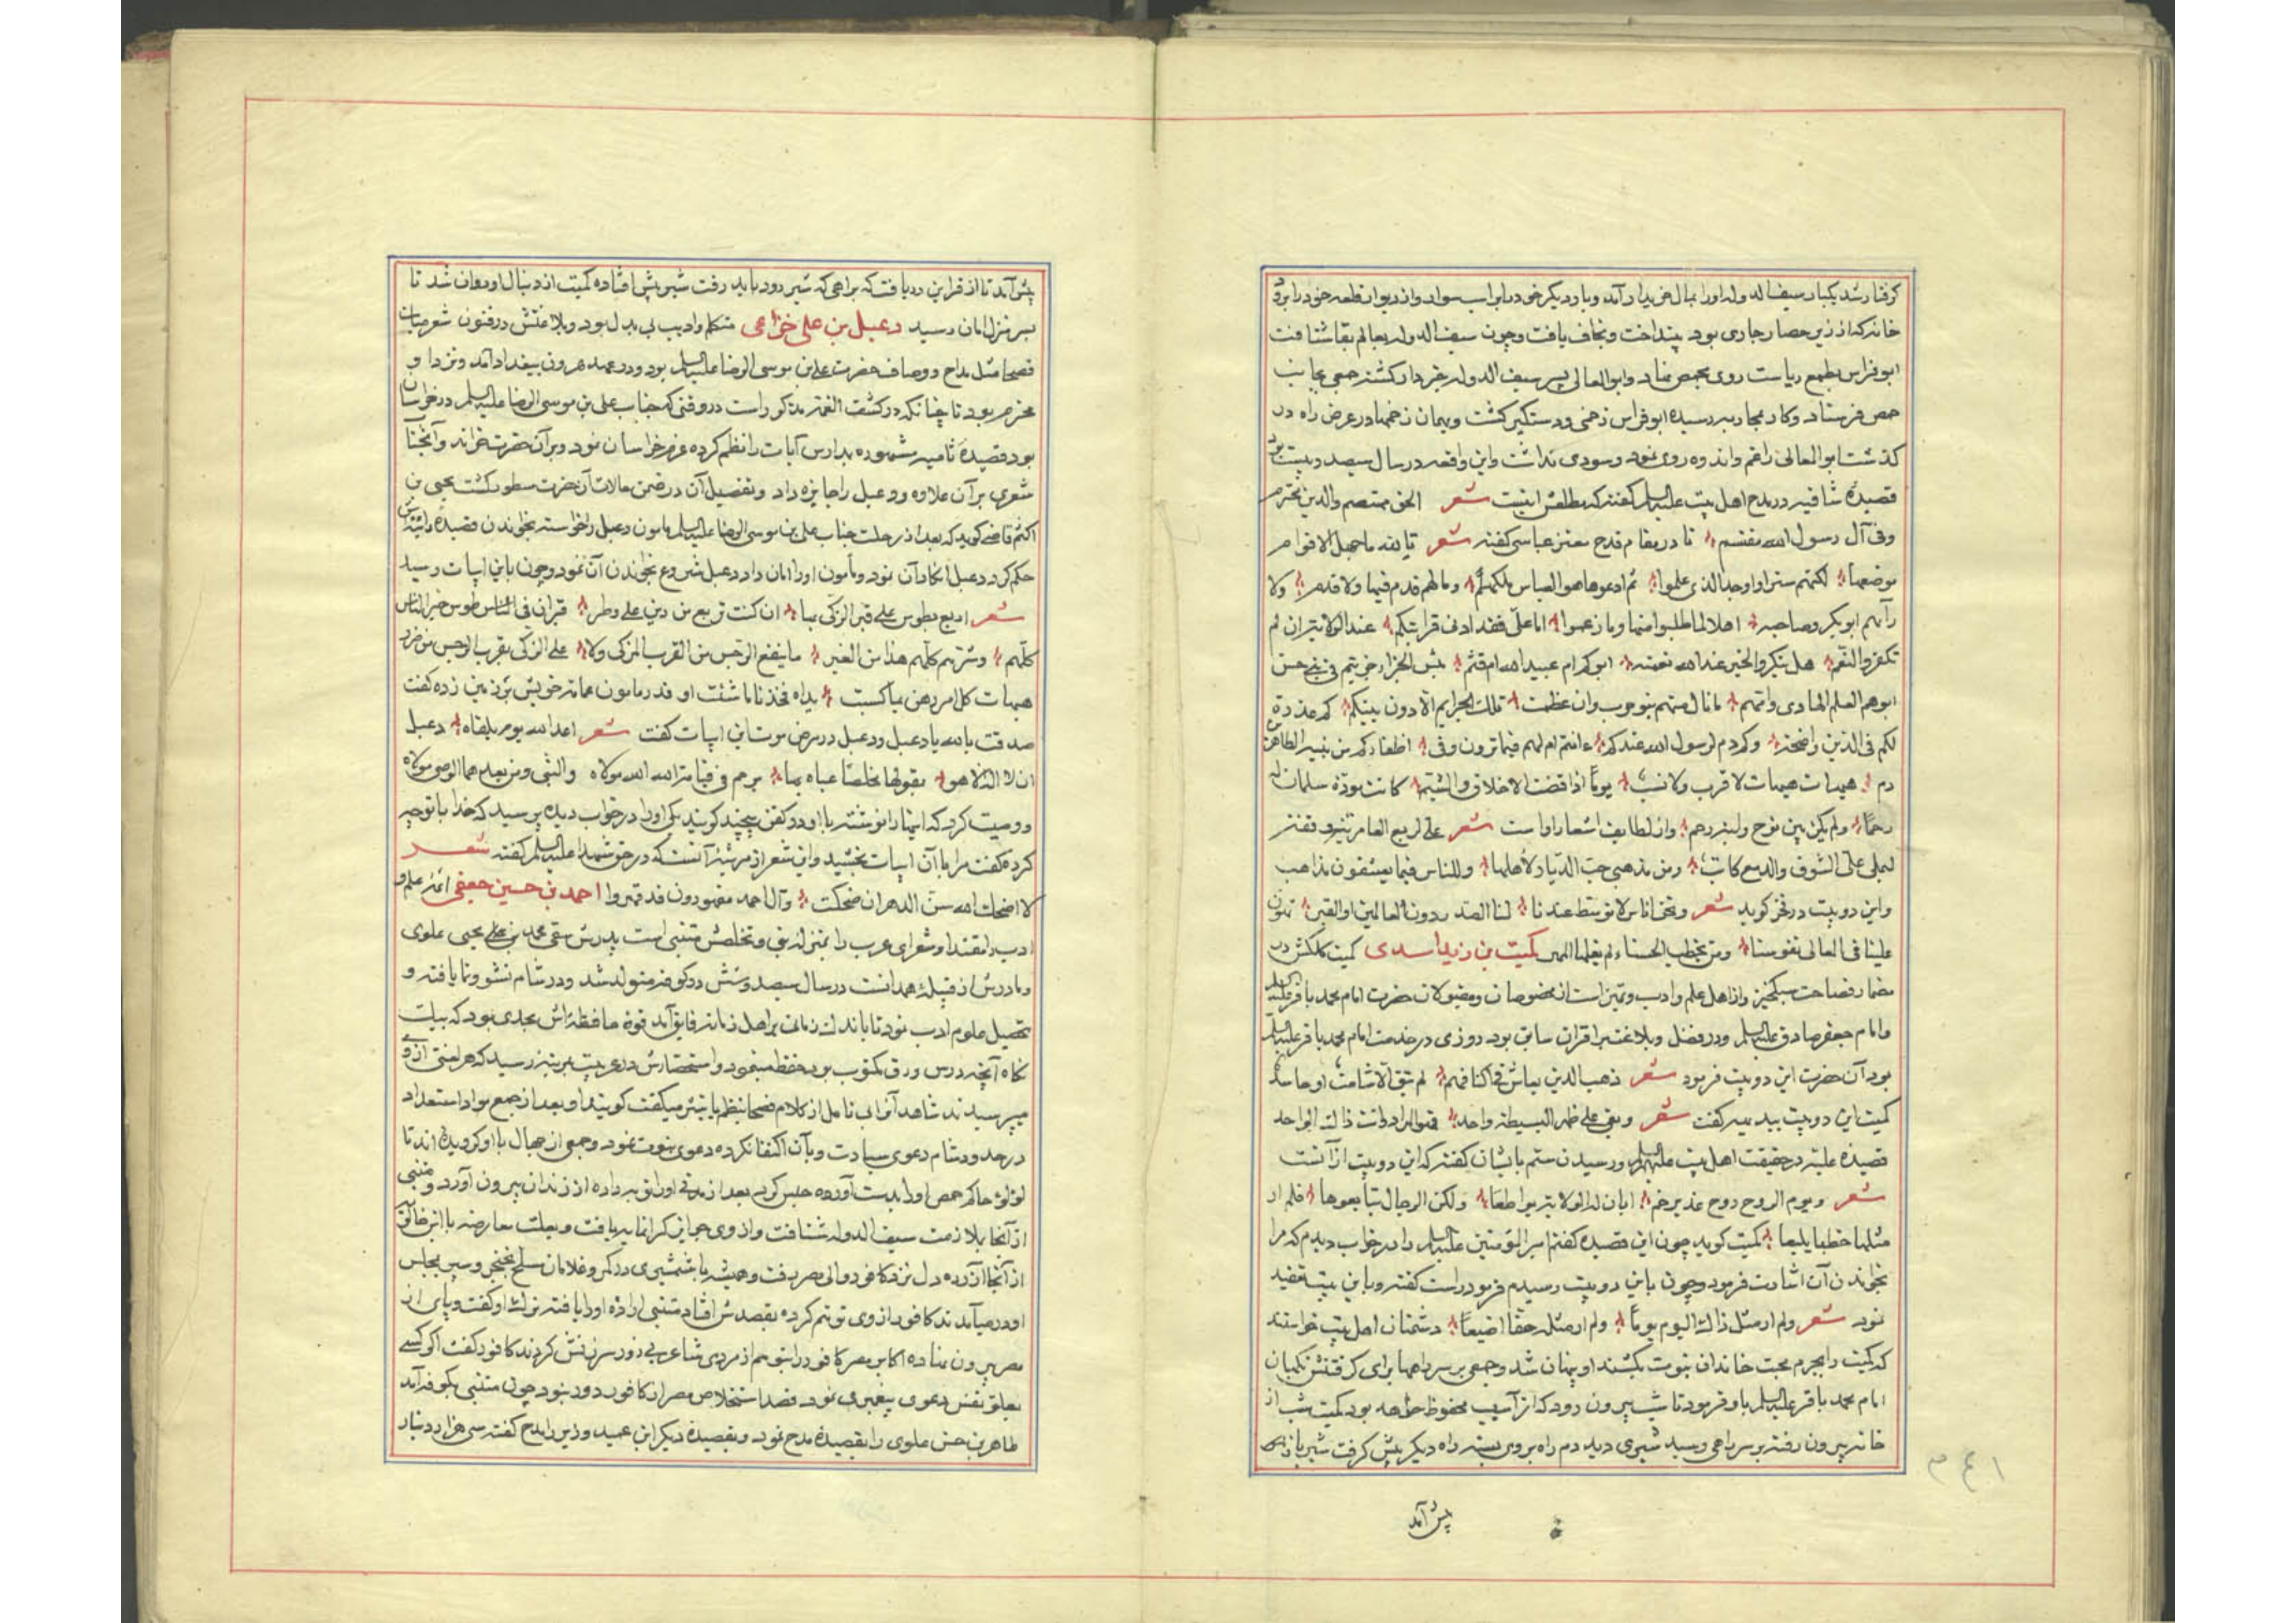 کرفتار شد یکبار سیف الدوله او را بمال خریدار آمد و بار دیکر خود را بر اسب سوار و از دیوار قلعه خود را برود
خانه که از زیر حصار جاری بود بینداخت و نجات یافت و چون سیف الدوله بعالم بقا شتافت
ابو فراس بطمع ریاست روی بحمص نهاد و ابو المعالی پسر سیف الدوله خبردار کشته جمعی بجانب
حمص فرستاد و کار بمحاربه رسیده ابو فراس زخمی و دستکیر کشت و بهمان زخمها در عرض راه در
کذشت ابو المعالی را غم و اندوه روی نمود و سودی نداشت و این واقعه در سال سیصد و بیست بود
قصیده شافیه در مدح اهل بیت علیهم السلم کفته که مطلعش اینست شعر الحق مهتضم والدین مخترم
وفی آل رسول الله مقتسم تا در مقام قدح معتز عباسی کفته شعر تالله ما جهل الاقوام
موضعها لکنهم ستروا وجه الذی علموا ثم ادعوها هو العباس ملکهم وما لهم قدم فیها ولا قدم ولا
رآهم ابو بکر وصاحبه اهلا لما طلبوا منها وما زعموا اما علی فقد ادنی قرابتکم عند الولایة ان لم
تکفر والنعم هل ینکر الخبر عبد الله نعمته ابوکم ام عبید الله ام قثم بئس الجزاء جزیتم فی بنی حسن
ابوهم العلم الهادی وامهم ما نال منهم بنو حرب وان عظمت تلک الجرایم الا دون نیلکم کم غدرة
لکم فی الدین واضحة وکم دم لرسول الله عندکم ءانتم آل لهم فیما ترون وفی اظفارکم من بنیه الطاهرین
دم هیهات هیهات لا قرب ولا نسب یوما اذا قضت الاخلاق والشیم کانت مودة سلمان له
رحما ولم یکن بین نوح وابنه رحم و از لطایف اشعار او است شعر علی لربع العامریة وقفة
لیملی علی الشوق والدمع کاتب ومن مذهبی حب الدیار لاهلها وللناس فیما یعشقون مذاهب
و این دو بیت در فخر کوید شعر ونحن اناس لا توسط عندنا لنا الصدر دون العالمین او القبر تهون
علینا فی المعالی نفوسنا ومن یخطب الحسناء لم یغلها المهر کمیت بن زید اسدی کمیت کلکش در
مضمار فصاحت سبکخیز و از اهل علم و ادب و تمیز است از مخصوصان و مقبولان حضرت امام محمد باقر علیه السلم
و امام جعفر صادق علیه السلم و در فضل و بلاغت بر اقران سابق بود روزی در خدمت امام محمد باقر علیه السلم
بود آن حضرت این دو بیت فرمود شعر ذهب الذین یعاش فی اکنافهم لم تبق الا شامت او حاسد
کمیت این دو بیت بدیهه کفت شعر وبقی علی ظهر البسیطة واحد فهو المراد وانت ذاک الواحد
قصیده علیة در حقیقت اهل بیت علیهم السلم و رسیدن ستم بایشان کفته که این دو بیت از آنست
شعر ویوم الدوح دوح غدیر خم ابان له الولایة لو اطیعا ولکن الرجال تبایعوها فلم ار
مثلها خطبا بلیعا کمیت کوید چون این قصیده کفتم امیر المؤمنین علیه السلم را در خواب دیدم که مرا
بخواندن آن اشارت فرمود و چون باین دو بیت رسیدم فرمود راست کفته و باین بیت تعقید
نمود شعر ولم ار مثل ذاک الیوم یوما ولم ار مثله حقا اضیعا دشمنان اهل بیت خواستند
که کمیت را بجرم محبت خاندان نبوت بکشند او پنهان شد و جمعی بر سر راهها برای کرفتنش نکهبان
امام محمد باقر علیه السلم باو فرمود تا شب بیرون رود که از آسیب محفوظ خواهد بود کمیت شب از
خانه بیرون رفته بر سر راهی رسید شیری دید دم راه بر وی بسته راه دیکر پیش کرفت شیر باز اش
پیش آمد
۱۴۳
پیش آمد تا از قراین دریافت که براهی که شیر رود باید رفت شیر پیش افتاده کمیت از دنبال او روان شد تا
بسر منزل امان رسید دعبل بن علی خزاعی متکلم و ادیب بی بدل بود و بلاغتش در فنون شعر میان
فصحا مثل مداح و وصاف حضرت علی بن موسی الرضا علیه السلم بود و در عهد هرون ببغداد آمد و نزد او
محترم بود تا چنانکه در کشف الغمه مذکور است در وقتی که جناب علی بن موسی الرضا علیه السلم در خراسان
بود قصیدۀ تائیه مشهوره بمدارس آیات را نظم کرده عزم خراسان نمود و بر آن حضرت خواند و آنجناب
شعری بر آن علاوه و دعبل را جایزه داد و تفصیل آن در ضمن حالات آن حضرت مسطور کشت یحیی بن
اکثم قاضی کوید که بعد از رحلت جناب علی بن موسی الرضا علیه السلم مامون دعبل را خواسته بخواندن قصیدۀ رائیه اش
حکم کرد دعبل انکار آن نمود و مامون او را امان داد دعبل شروع بخواندن آن نمود و چون باین ابیات رسید
شعر اربع بطوس علی قبر الزکی بها ان کنت تربع من دین علی وطر قبران فی طوس خیر الناس
کلهم وشرهم کلهم هذا من العبر ما ینفع الرجس من القرب الزکی ولا علی الزکی بقرب الرجس من ضرر
هیهات کل امرء رهن بما کسبت یداه فخذ ما شئت او فذر مامون عمامه خویش بر زمین زده کفت
صدقت بالله یا دعبل و دعبل در مرض موت این ابیات کفت شعر اعد الله یوم یلقاه دعبل
ان لا اله الا هو یقولها مخلصا عساه بها یرحم فی قیامته الله الله مولاه والنبی ومن بعدهما الوصی مولاه
و وصیت کرد که اینها را نوشته با او در کفن پیچند کویند یکی او را در خواب دیده پرسید که خدا با تو چه
کرد کفت مرا با آن ابیات بخشید و این شعر از مرثیه آنست که در حق شهدا علیهم السلم کفته شعر
لا اضحک الله سن الدهر ان ضحکت وآل احمد مقهورون قد قهروا احمد بن حسین جعفی ائمه علم و
ادب را مقتدا و شعرای عرب را بمنزله نبی و تخلصش متنبی است پدرش سقی محمد بن علی یحیی علوی
و مادرش از قبیلۀ همدانست در سال سیصد و شش در کوفه متولد شد و در شام نشو و نما یافته و
تحصیل علوم ادب نمود تا باندک زمانی بر اهل زمانه فایق آمد قوۀ حافظه اش بحدی بود که بیک
نکاه آنچه در سی ورق مکتوب بود حفظ مینمود و استحضارش در عربیت بمرتبه رسید که هر لغتی از وی
میپرسیدند شاهد آنرا بی تامل از کلام فصحا بنظم یا بنثر میکفت کویند او بعد از جمع مواد استعداد
در حدود شام دعوی سیادت و بآن اکتفا نکرده دعوی نبوت نمود و جمعی از جهال با او کرویده اند تا
لؤلؤ حاکم حمص او را بدست آورده حبس کرد بعد از مدتی او را توبه داده از زندان بیرون آورد و متنبی
از آنجا بملازمت سیف الدوله شتافت و از وی جوایز کرانمایه یافت و بعلت معارضه با ابن خالویه
از آنجا آزرده دل نزد کافور والی مصر رفت و همیشه با شمشیری در کمر و غلامان مسلح بخنجر و سپر بمجلس
او در میآمدند کافور از وی توهم کرده بقصدش افتاد متنبی اراده او را یافته ترک او کفت و پای از
مصر بیرون نهاده اکابر مصر کافور را بتوهم از مردی شاعر بی زور سرزنش کردند کافور کفت اکر کسی
بعلو نفس دعوی پیغمبری نمود قصد استخلاص مصر از کافور دور نبود چون متنبی بکوفه آمد
طاهر بن حسن علوی را بقصیدۀ مدح نمود و بقصیدۀ دیکر ابن عمید وزیر را مدح کفته سی هزار دینار